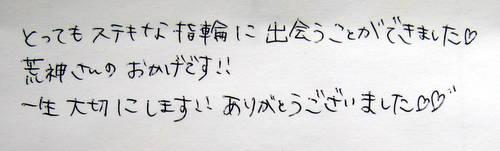 とっても ステキな 指輪に 出会うことができました♡
荒神さんの おかげです!!
一生 大切にします!! ありがとうございました♡♡